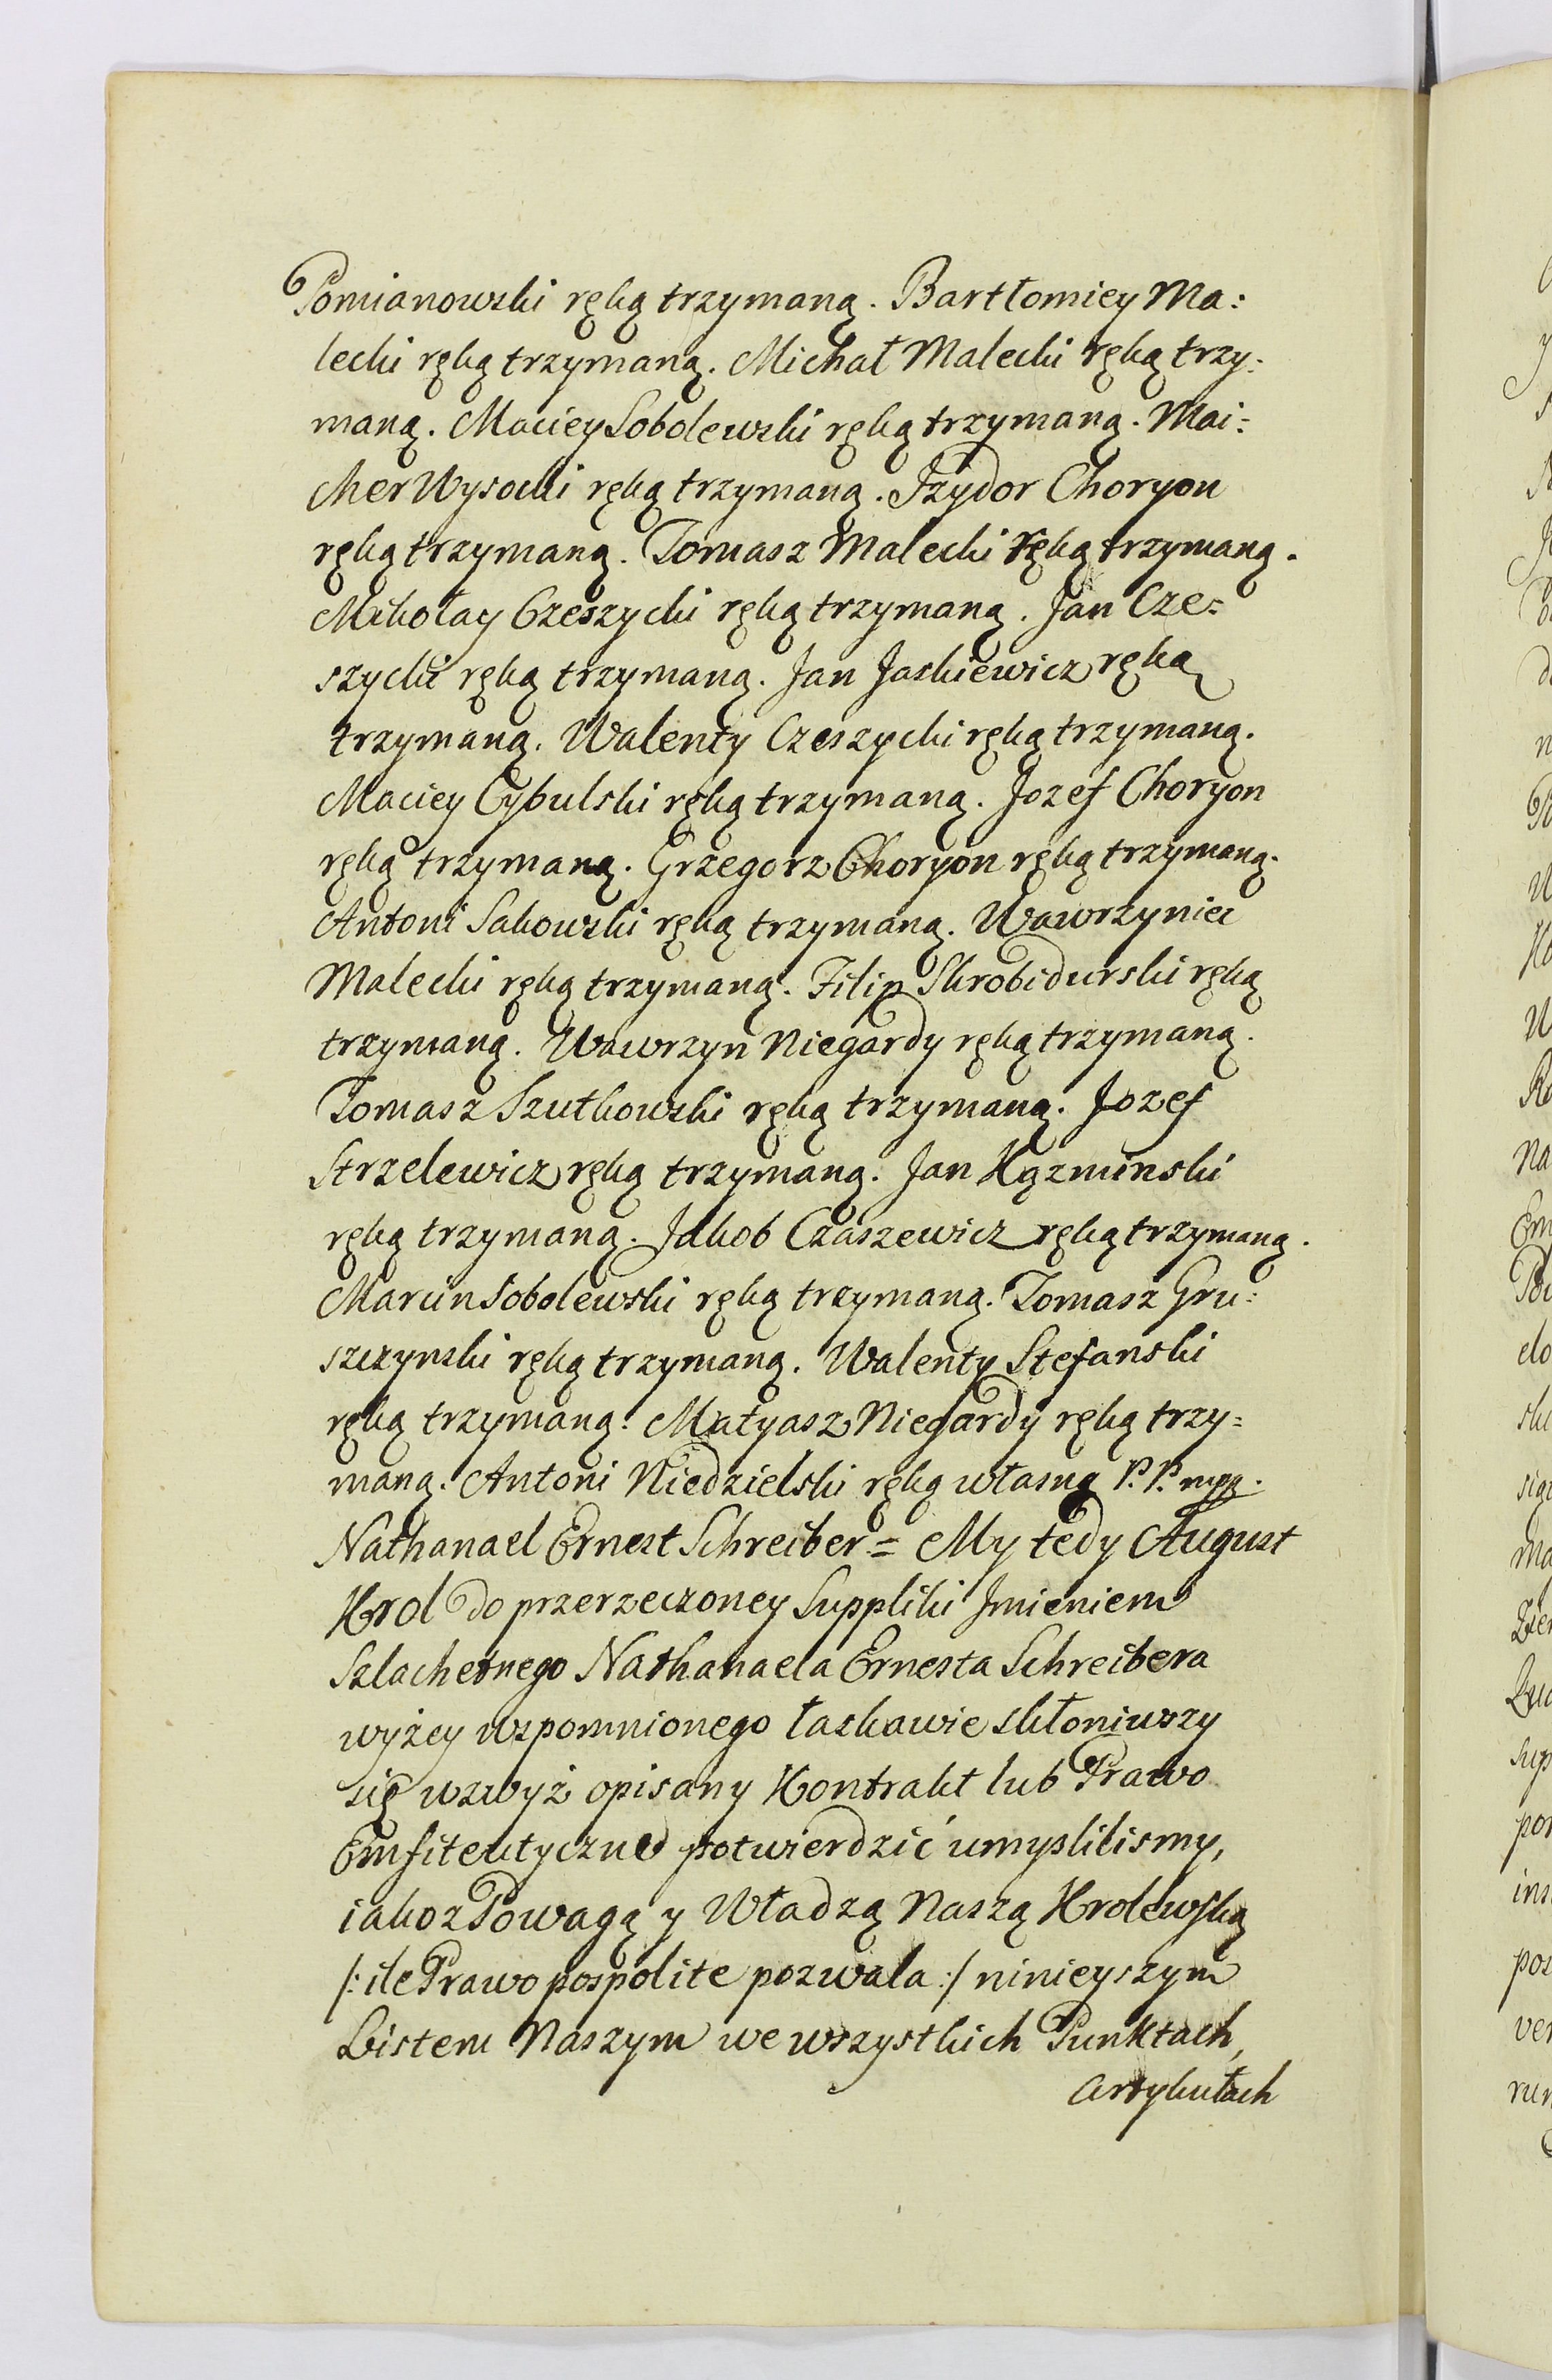 Pomianowski ręką trzymaną. Bartłomiey Ma:
lecki ręką trzymaną. Michał Malecki ręką trzy:
maną. Maciey Sobolewski ręką trzymaną. Mai:
cher Wysocki ręką trzymaną. Izydor Choryon
ręką trzymaną. Tomasz Malecki ręką trzymaną.
Mikołay Czeszycki ręką trzymaną. Jan Cze:
szycki ręką trzymaną. Jan Jaskiewicz ręką
trzymaną. Walenty Czeszycki ręką trzymaną.
Maciey Cybulski ręką trzymaną. Jozef Choryon
ręką trzymaną. Grzegorz Choryon ręką trzymaną.
Antoni Sakowski ręką trzymaną. Wawrzyniec
Malecki ręką trzymaną. Filip Skrobidurski ręką
trzymaną. Wawrzyn Niegardy ręką trzymaną.
Tomasz Szutkowski ręką trzymaną. Jozef
Strzelewicz ręką trzymaną. Jan Kązminski
ręką trzymaną. Jakob Czaszewicz ręką trzymaną.
Marcin Sobolewski ręką trzymaną. Tomasz Gru:
szczynski ręką trzymaną. Walenty Stefanski
ręką trzymaną. Matyasz Niegardy ręką trzy=
maną. Antoni Niedzielski ręką własną P. P. mpp.
Nathanael Ernest Schreiber = My tedy August
Krol do przerzeczoney Suppliki Jmieniem
Szlachetnego Nathanaela Ernesta Schreibera
wyżey wspomnionego łaskawie skłoniwszy
się wzwyż opisany Kontrakt lub Prawo
Emfiteutyczne potwierdzić umyslilismy,
iakoz Powagą y Władzą Naszą Krolewską
/: ile Prawo pospolite pozwala :/ ninieyszym
Listem Naszym we wszystkich Punktach,
artykułach